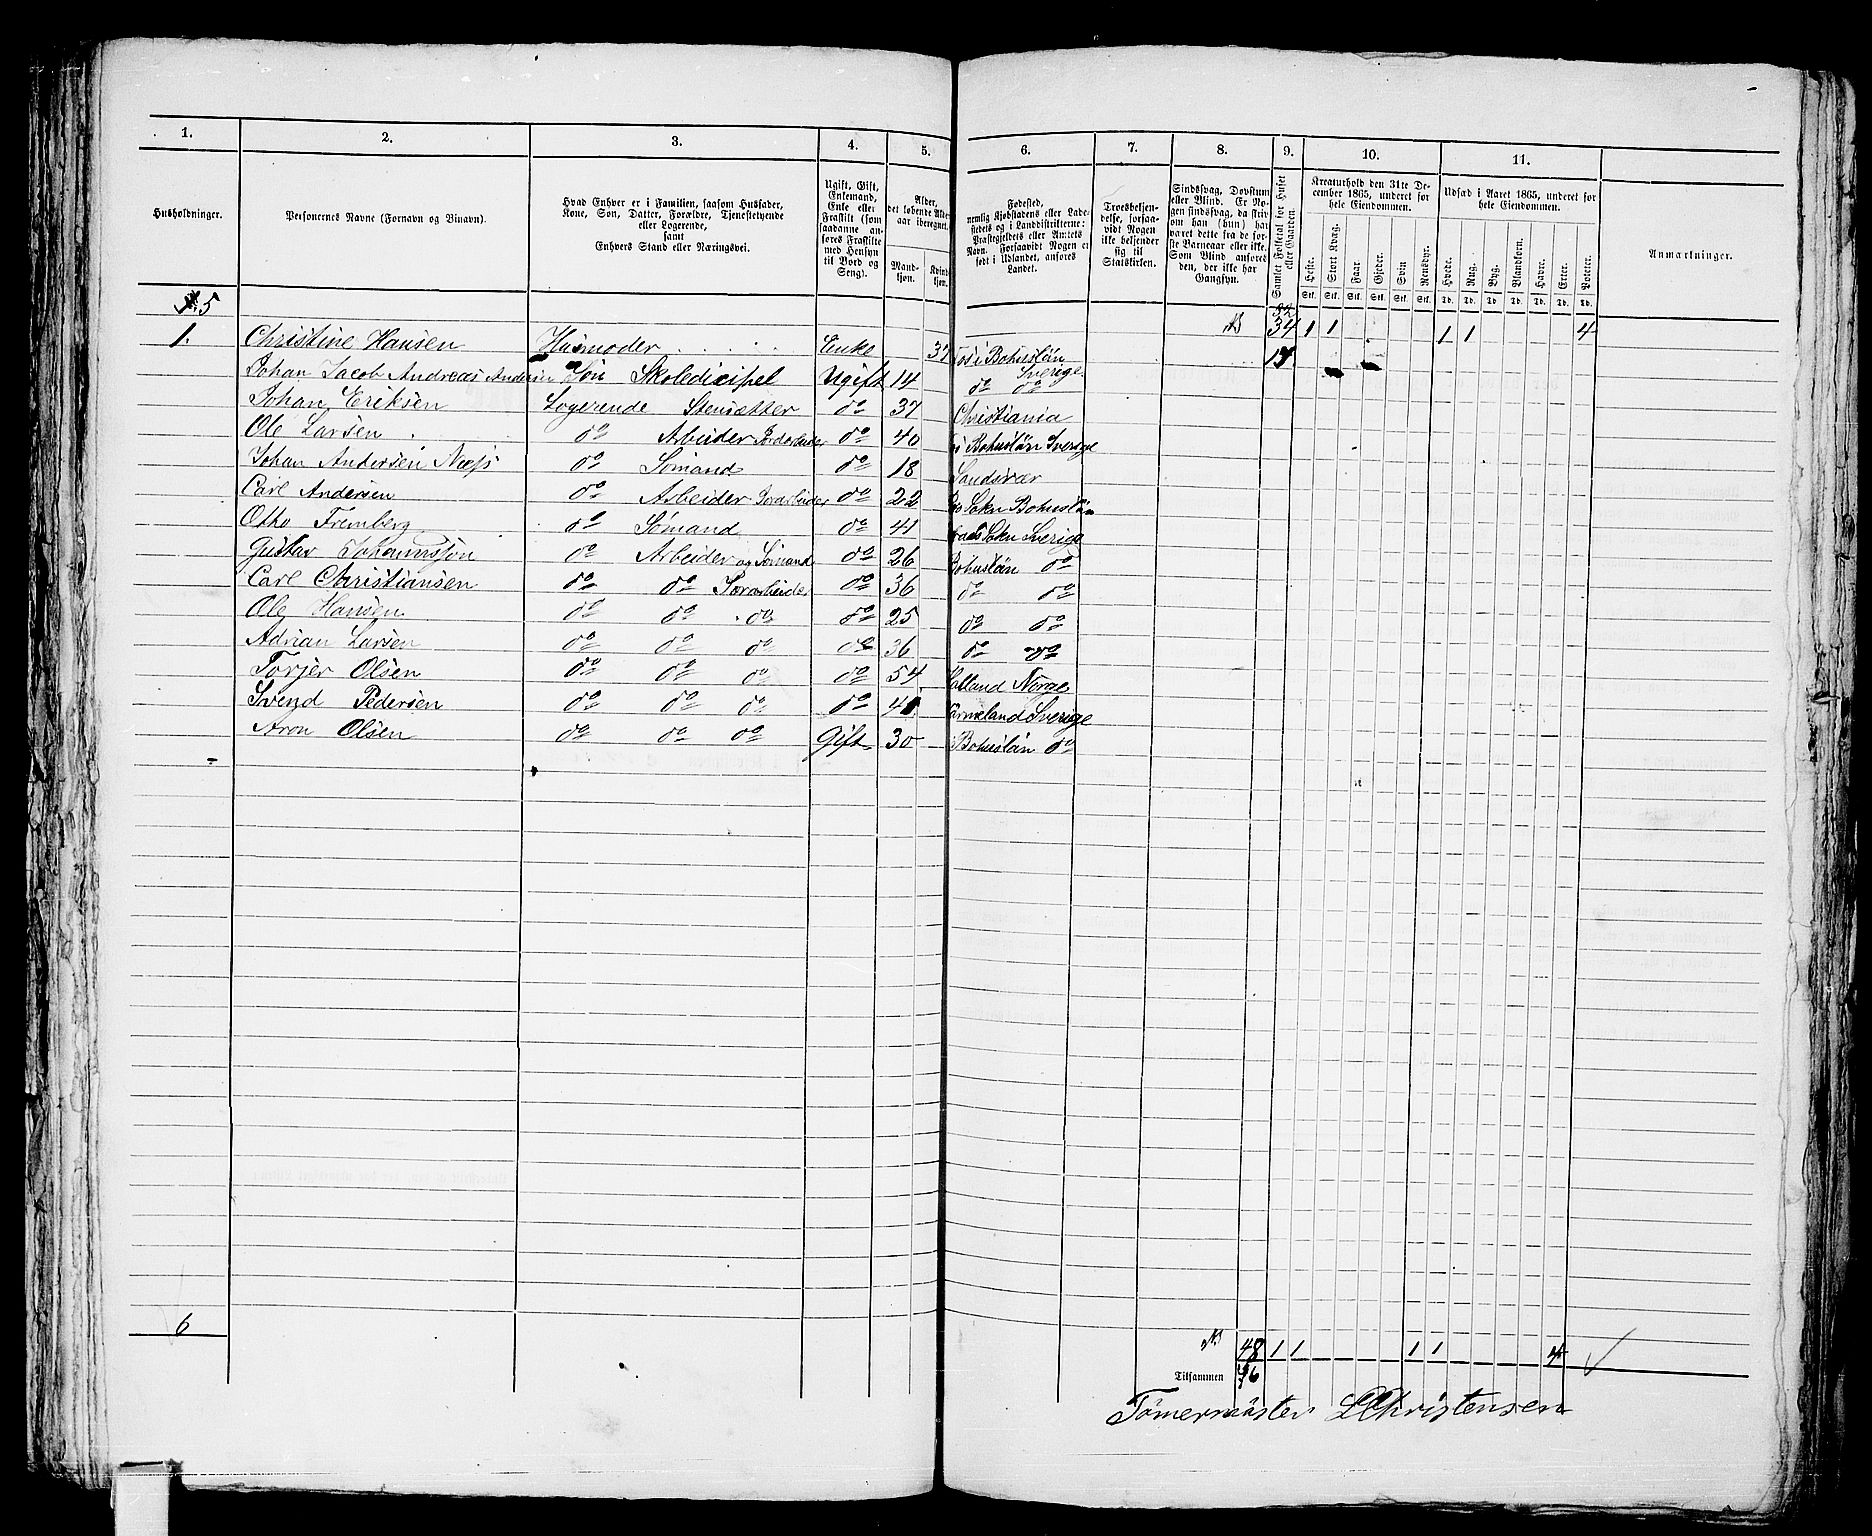 1. 2. 3. 4. 5. 6. 7. 8. 9. 10. 11.
Husholdninger.
Personernes Navne (Fornavn og Binavn).
Hvad Enhver er i Familien, saasom Husfader,
Kone, Søn, Datter, Forældre, Tjenestetyende
eller Logerende,
samt
Enhvers Stand eller Næringsvei.
Ugift, Gift,
Enkemand,
Enke eller
Fraskilt (som
saadanne an-
føres Fraskilte
med Hensyn
til Bord og
Seng).
Alder,
det løbende Alders-
aar iberegnet.
Mand-
kjøn.
Kvinde-
kjøn.
Fødested,
nemlig Kjøbstadens eller Lade-
stedets og i Landdistrikterne:
Præstegjeldets eller Amtets
Navn. Forsaavidt Nogen er
født i Udlandet, anføres
Landet.
Troesbekjen-
delse, forsaa-
vidt Nogen
ikke bekjender
sig til
Statskirken.
Sindssvag, Døvstum
eller Blind. Er No-
gen sindssvag, da skriv
han (hun) har
været dette fra de før-
ste Barneaar eller ikke.
Som Blind anføres
den, der ikke har
Gangsyn.
Samlet Folketal for Huset
eller Gaarden.
Kreaturhold den 31te De-
cember 1865, underet for
hele Eiendommen.
Heste. Stort Kvæg. Faar. Gjeder. Svin Rensdyr.
Stk. Stk. Stk. Stk. Stk. Stk.
Udsæd i Aaret 1865, underet for
hele Eiendommen.
Hvede. Rug. Byg. Blandkorn. Havre. Erter. Poteter.
Td. Td. Td. Td. Td. Td. Td.
Anmærkninger.
5
32
34 1 1 1 1 4
1. Christine Hansen Husmoder Enke 37 i Bohuslän
Sverige 14
Johan Jacob Andreas Andersen Søn Skoledicipel Ugift 14 do do
Johan Eriksen Logerende Stensætter do 37 Christiania
Ole Larsen do Arbeider Jordarbeider do 40 Bohuslän Sverige
Johan Andersen Næss do Sømand do 18 Sandsvær
Carl Andersen do Arbeider Jorarbeider do 22 Sokn Bohuslän
Otho Fremberg do Sømand do 41 Sokn Sverige
Gustav Johannssøn do Arbeider og Sømand do 26 Bohuslän do
Carl Christiansen do do Jorarbeider do 36 do do
Ole Hansen do do do do 25 do do
Adrian Larsen do do do do 36 do do
Torjer Olsen do do do do 54 Norge
Svend Pedersen do do do do 41 Sverige
Aron Olsen do do do Gift 30 Bohuslän do
6
48 1 1 1 1 4
Tilsammen
Tømermäster LChristensen